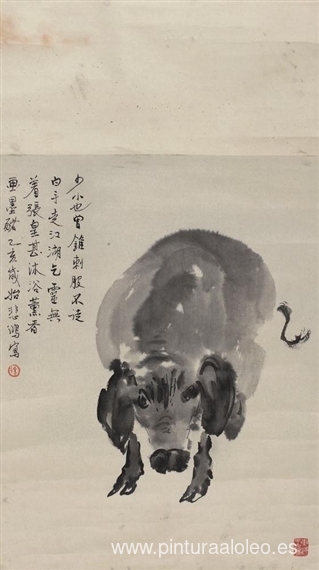 少小也曾錐刺股不徒
白手走江湖乞靈無
着張皇甚沐浴薰香
畫墨豬乙亥歲始悲鴻寫
www.pinturaaloleo.es